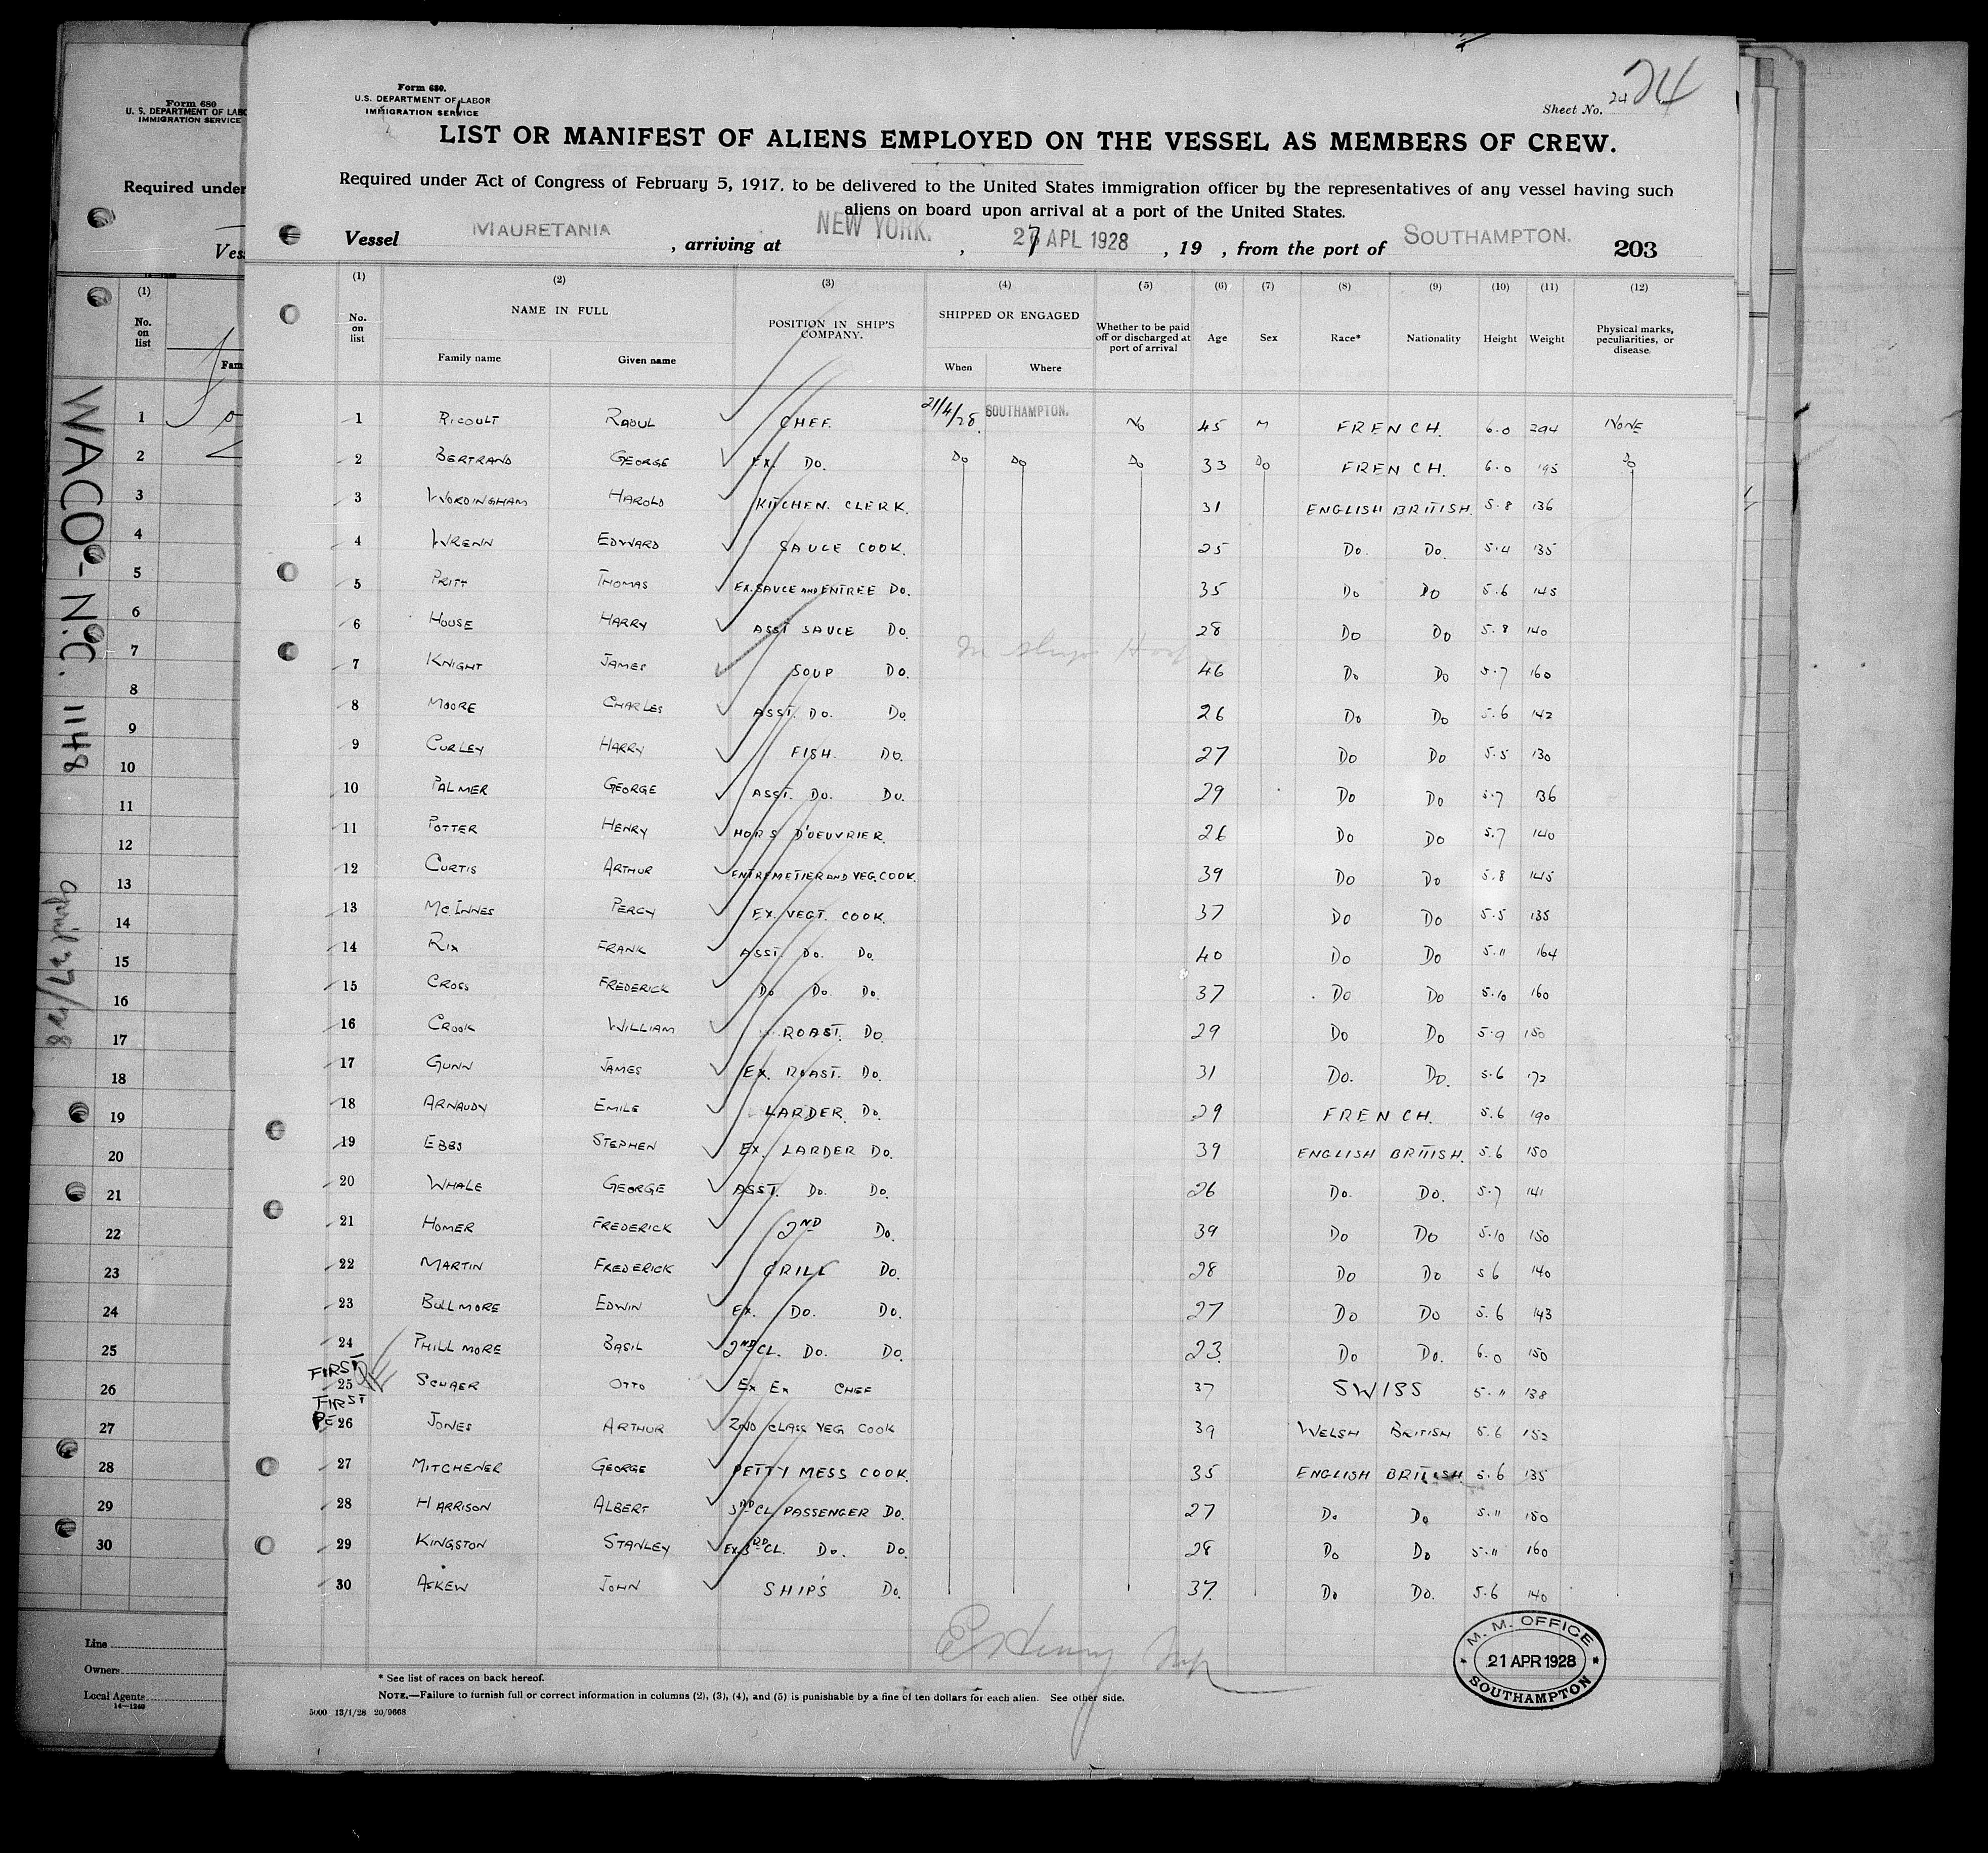 Form 680
U. S. DEPARTMENT OF LABO
IMMIGRATION SERVICE
Required under
Ves
(1)
No.
on
list
Fam
1
2
3
4
5
6
7
8
9
10
11
12
13
14
15
16
17
18
19
20
21
22
23
24
25
26
27
28
29
30
Line
Owners
Local Agents
14—1240
WACO - N.C. 1148
april 27/28
Form 680.
U.S. DEPARTMENT OF LABOR
IMMIGRATION SERVICE
Sheet No. 24 24
LIST OR MANIFEST OF ALIENS EMPLOYED ON THE VESSEL AS MEMBERS OF CREW.
Required under Act of Congress of February 5, 1917, to be delivered to the United States immigration officer by the representatives of any vessel having such
aliens on board upon arrival at a port of the United States.
Vessel MAURETANIA, arriving at NEW YORK., 27 APL 1928, 19 , from the port of SOUTHAMPTON. 203
(1) (2) (3) (4) (5) (6) (7) (8) (9) (10) (11) (12)
No. on list NAME IN FULL Family name Given name POSITION IN SHIP'S COMPANY. SHIPPED OR ENGAGED When Where Whether to be paid off or discharged at port of arrival Age Sex Race* Nationality Height Weight Physical marks, peculiarities, or disease.
1 RICOULT RAOUL CHEF. 21/4/28. SOUTHAMPTON. No 45 M FRENCH. 6.0 294 NONE
2 BERTRAND GEORGE EX. Do. Do Do Do 33 Do FRENCH. 6.0 195 Do
3 WORDINGHAM HAROLD KITCHEN. CLERK. 31 ENGLISH BRITISH. 5.8 136
4 WRENN EDWARD SAUCE COOK. 25 Do. Do. 5.4 135
5 PRITT THOMAS EX. SAUCE AND ENTREE Do. 35 Do Do 5.6 145
6 HOUSE HARRY ASST SAUCE Do. 28 Do Do 5.8 140
7 KNIGHT JAMES SOUP Do. 46 Do Do 5.7 160
8 MOORE CHARLES ASST. Do. Do. 26 Do Do 5.6 142
9 CURLEY HARRY FISH. Do. 27 Do Do 5.5 130
10 PALMER GEORGE ASST. Do. Do. 29 Do Do 5.7 136
11 POTTER HENRY HORS D'OEUVRIER. 26 Do Do 5.7 140
12 CURTIS ARTHUR ENTREMETIER AND VEG. COOK. 39 Do Do 5.8 145
13 MCINNES PERCY EX. VEGT. COOK. 37 Do Do 5.5 135
14 RIX FRANK ASST. Do. Do. 40 Do Do 5.11 164
15 CROSS FREDERICK Do Do. Do. 37 Do Do 5.10 160
16 CROOK WILLIAM ROAST. Do. 29 Do Do 5.9 150
17 GUNN JAMES EX. ROAST. Do. 31 Do. Do. 5.6 172
18 ARNAUDY EMILE LARDER. Do. 29 FRENCH. 5.6 190
19 EBBS STEPHEN EX. LARDER Do. 39 ENGLISH BRITISH. 5.6 150
20 WHALE GEORGE ASST. Do. Do. 26 Do. Do. 5.7 141
21 HOMER FREDERICK 2ND Do. 39 Do Do 5.10 150
22 MARTIN FREDERICK GRILL Do. 28 Do Do 5 6 140
23 BULLMORE EDWIN EX. Do. Do. 27 Do Do 5.6 143
24 PHILLMORE BASIL 2ND CL. Do. Do. 23. Do Do. 6.0 150
FIRST
25 SCHAER OTTO EX EX CHEF 37 SWISS 5.11 138
FIRST
PE 26 JONES ARTHUR 2ND CLASS VEG COOK 39 WELSH BRITISH 5.6 152
27 MITCHENER GEORGE PETTY MESS COOK. 35 ENGLISH BRITISH. 5.6 135
28 HARRISON ALBERT 3RD CL PASSENGER Do. 27 Do Do 5.11 150
29 KINGSTON STANLEY EX 3RD CL. Do. Do. 28 Do Do 5.11 160
30 ASKEW JOHN SHIP'S Do. 37. Do Do. 5.6 140
M. M. OFFICE
21 APR 1928
SOUTHAMPTON
* See list of races on back hereof.
NOTE.—Failure to furnish full or correct information in columns (2), (3), (4), and (5) is punishable by a fine of ten dollars for each alien. See other side.
5000 13/1/28 20/9668